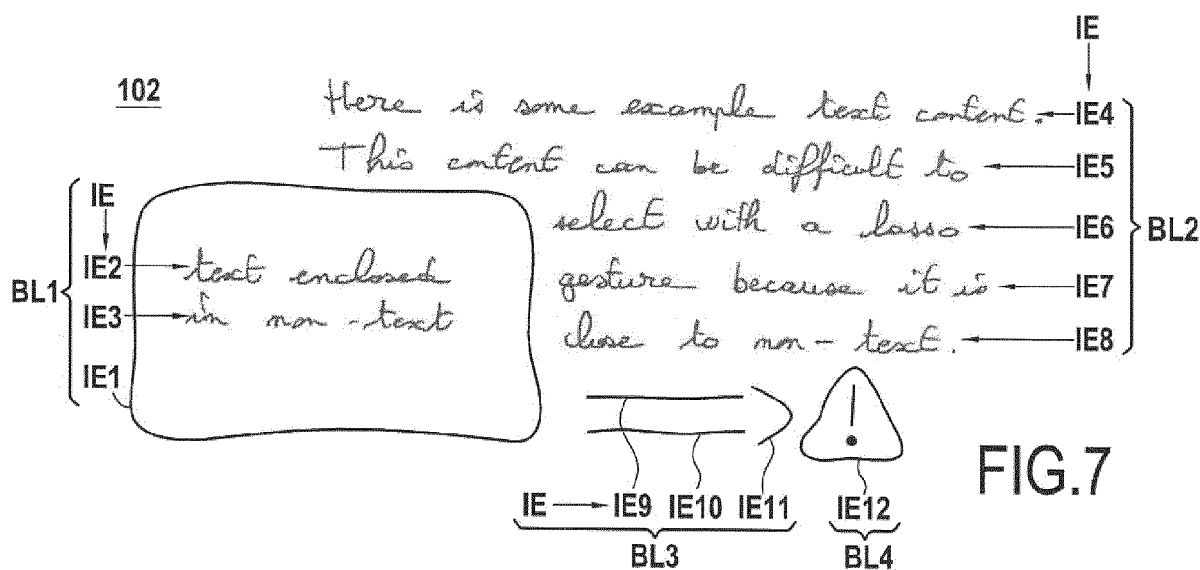 IE
102
Here is some example text content. IE4
This content can be difficult to IE5
select with a lasso IE6
gesture because it is IE7
close to non-text. IE8
BL2
IE
BL1
IE2 text enclosed
IE3 in non-text
IE1
IE IE9 IE10 IE11
BL3
IE12
BL4
FIG.7